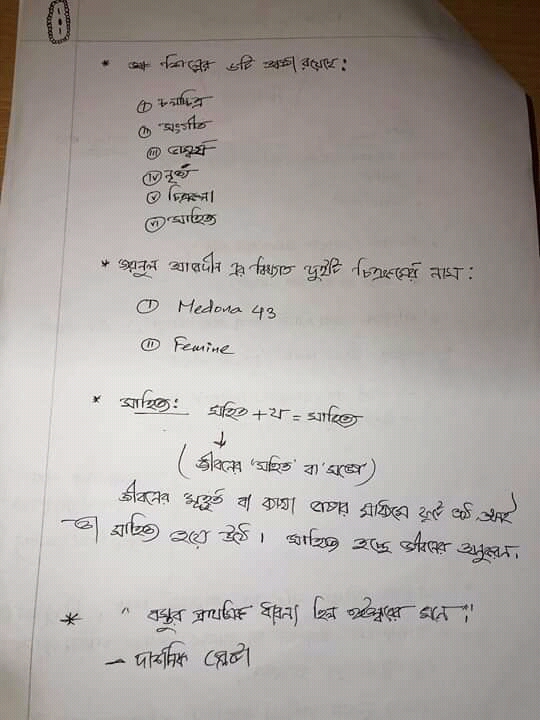 101
* শিল্পের ৬টি অঙ্গ রয়েছে:
i চলচ্চিত্র
ii সংগীত
iii ভাস্কর্য
iv নৃত্য
v চিত্রকলা
vi সাহিত্য
* জয়নুল আবেদীন এর বিখ্যাত দুইটি চিত্রকর্মের নাম:
i Medona 43
ii Femine
* সাহিত্য: সহিত + য = সাহিত্য
(জীবনের 'সহিত' বা 'সঙ্গে')
জীবনের মুহূর্ত বা কথা ভাষার মাধ্যমে ফুটে উঠে তখনই
তা সাহিত্য হয়ে উঠে। সাহিত্য হচ্ছে জীবনের অনুকরন.
* "বস্তুর প্রাথমিক ধারনা ছিল ঈশ্বরের মনে"।
- দার্শনিক প্লেটো